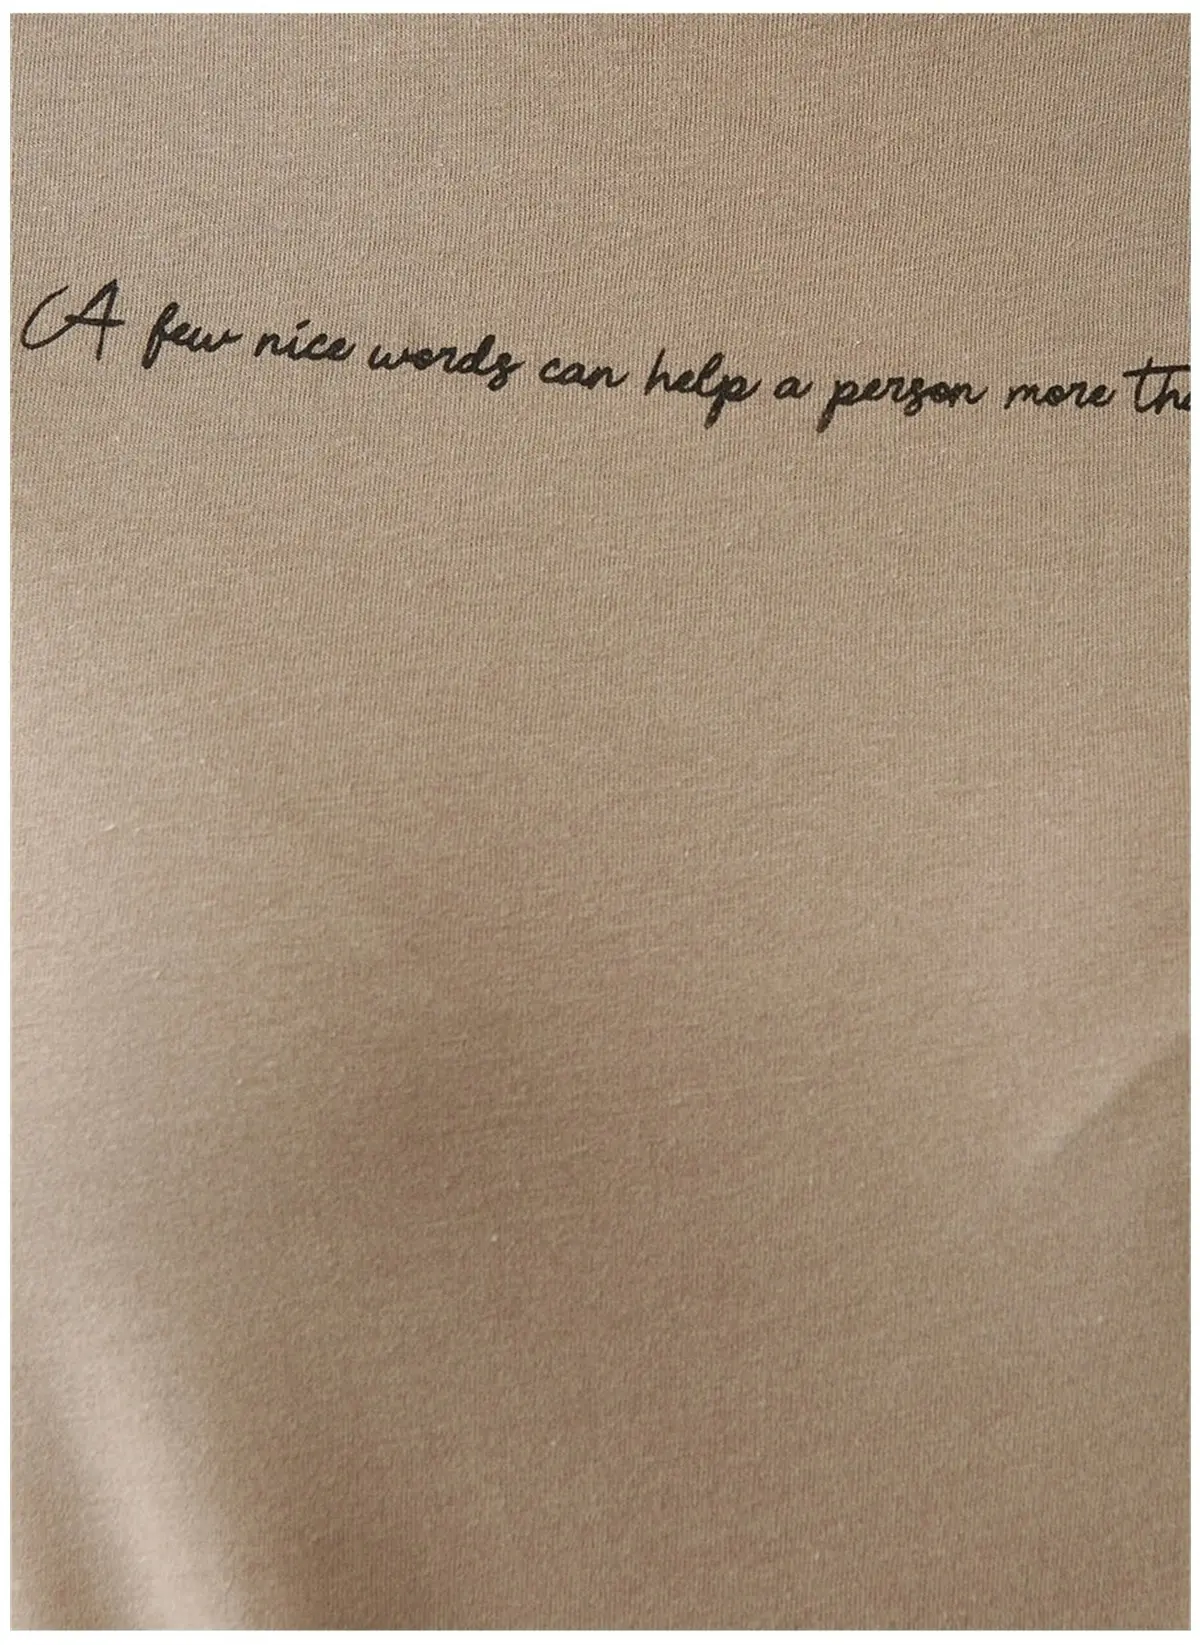 A few nice words can help a person more tha